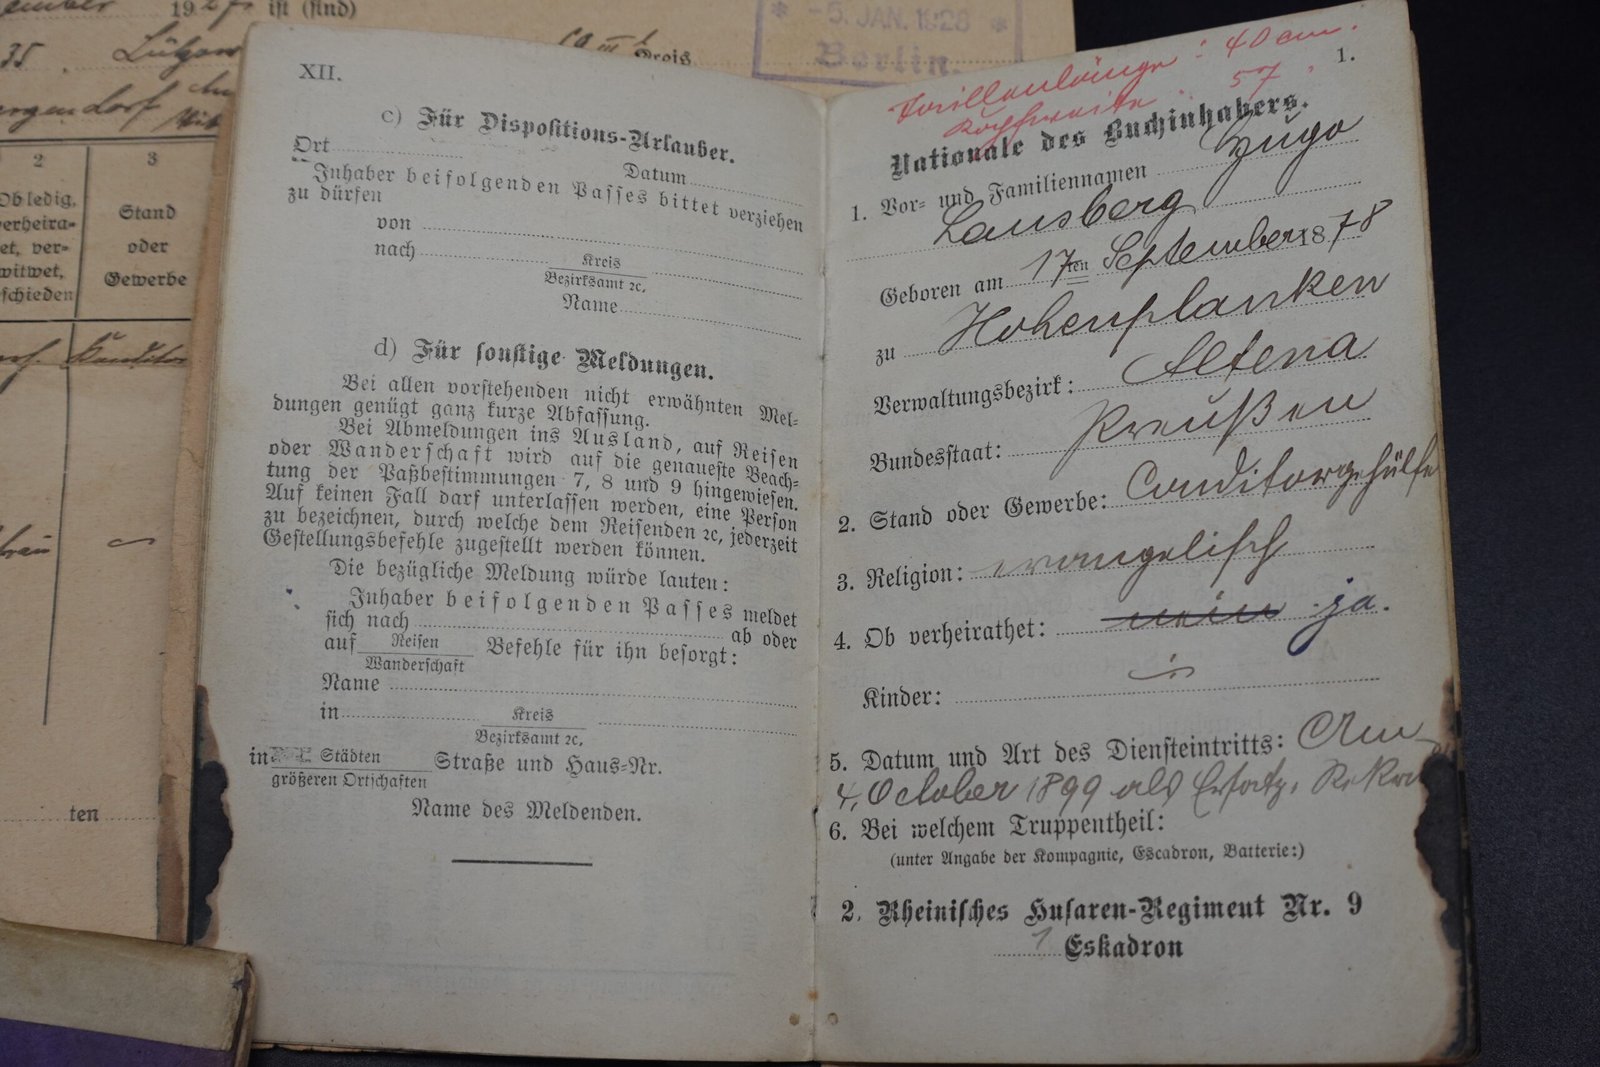 1927. ist (sind)
35. Lützow
Kreis
-5. JAN. 1928
Berlin.
2
3
Ob ledig,
verheira-
et, ver-
witwet,
schieden
Stand
oder
Gewerbe
Konditor
ten
XII.
c) Für Dispositions-Urlauber.
Ort
Datum
Inhaber beifolgenden Passes bittet verziehen
zu dürfen
von
nach
Kreis
Bezirksamt ꝛc.
Name
d) Für sonstige Meldungen.
Bei allen vorstehenden nicht erwähnten Mel-
dungen genügt ganz kurze Abfassung.
Bei Abmeldungen ins Ausland, auf Reisen
oder Wanderschaft wird auf die genaueste Beach-
tung der Paßbestimmungen 7, 8 und 9 hingewiesen.
Auf keinen Fall darf unterlassen werden, eine Person
zu bezeichnen, durch welche dem Reisenden ꝛc. jederzeit
Gestellungsbefehle zugestellt werden können.
Die bezügliche Meldung würde lauten:
Inhaber beifolgenden Passes meldet
sich nach
ab oder
auf Reisen
Wanderschaft
Befehle für ihn besorgt:
Name
in
Kreis
Bezirksamt ꝛc.
in Städten
größeren Ortschaften
Straße und Haus-Nr.
Name des Meldenden.
1.
Taillenlänge: 40 cm.
Kopfweite 57
Nationale des Buchinhabers.
1. Vor- und Familiennamen Hugo
Lausberg
Geboren am 17ten September 1878
zu Hohenplanken
Verwaltungsbezirk: Altena
Bundesstaat: Preußen
2. Stand oder Gewerbe: Conditorgehülfe
3. Religion: evangelisch
4. Ob verheirathet: nein ja.
Kinder:
5. Datum und Art des Diensteintritts: Am
4. October 1899 als Ersatz. Rekru
6. Bei welchem Truppentheil:
(unter Angabe der Kompagnie, Escadron, Batterie:)
2. Rheinisches Husaren-Regiment Nr. 9
1 Eskadron